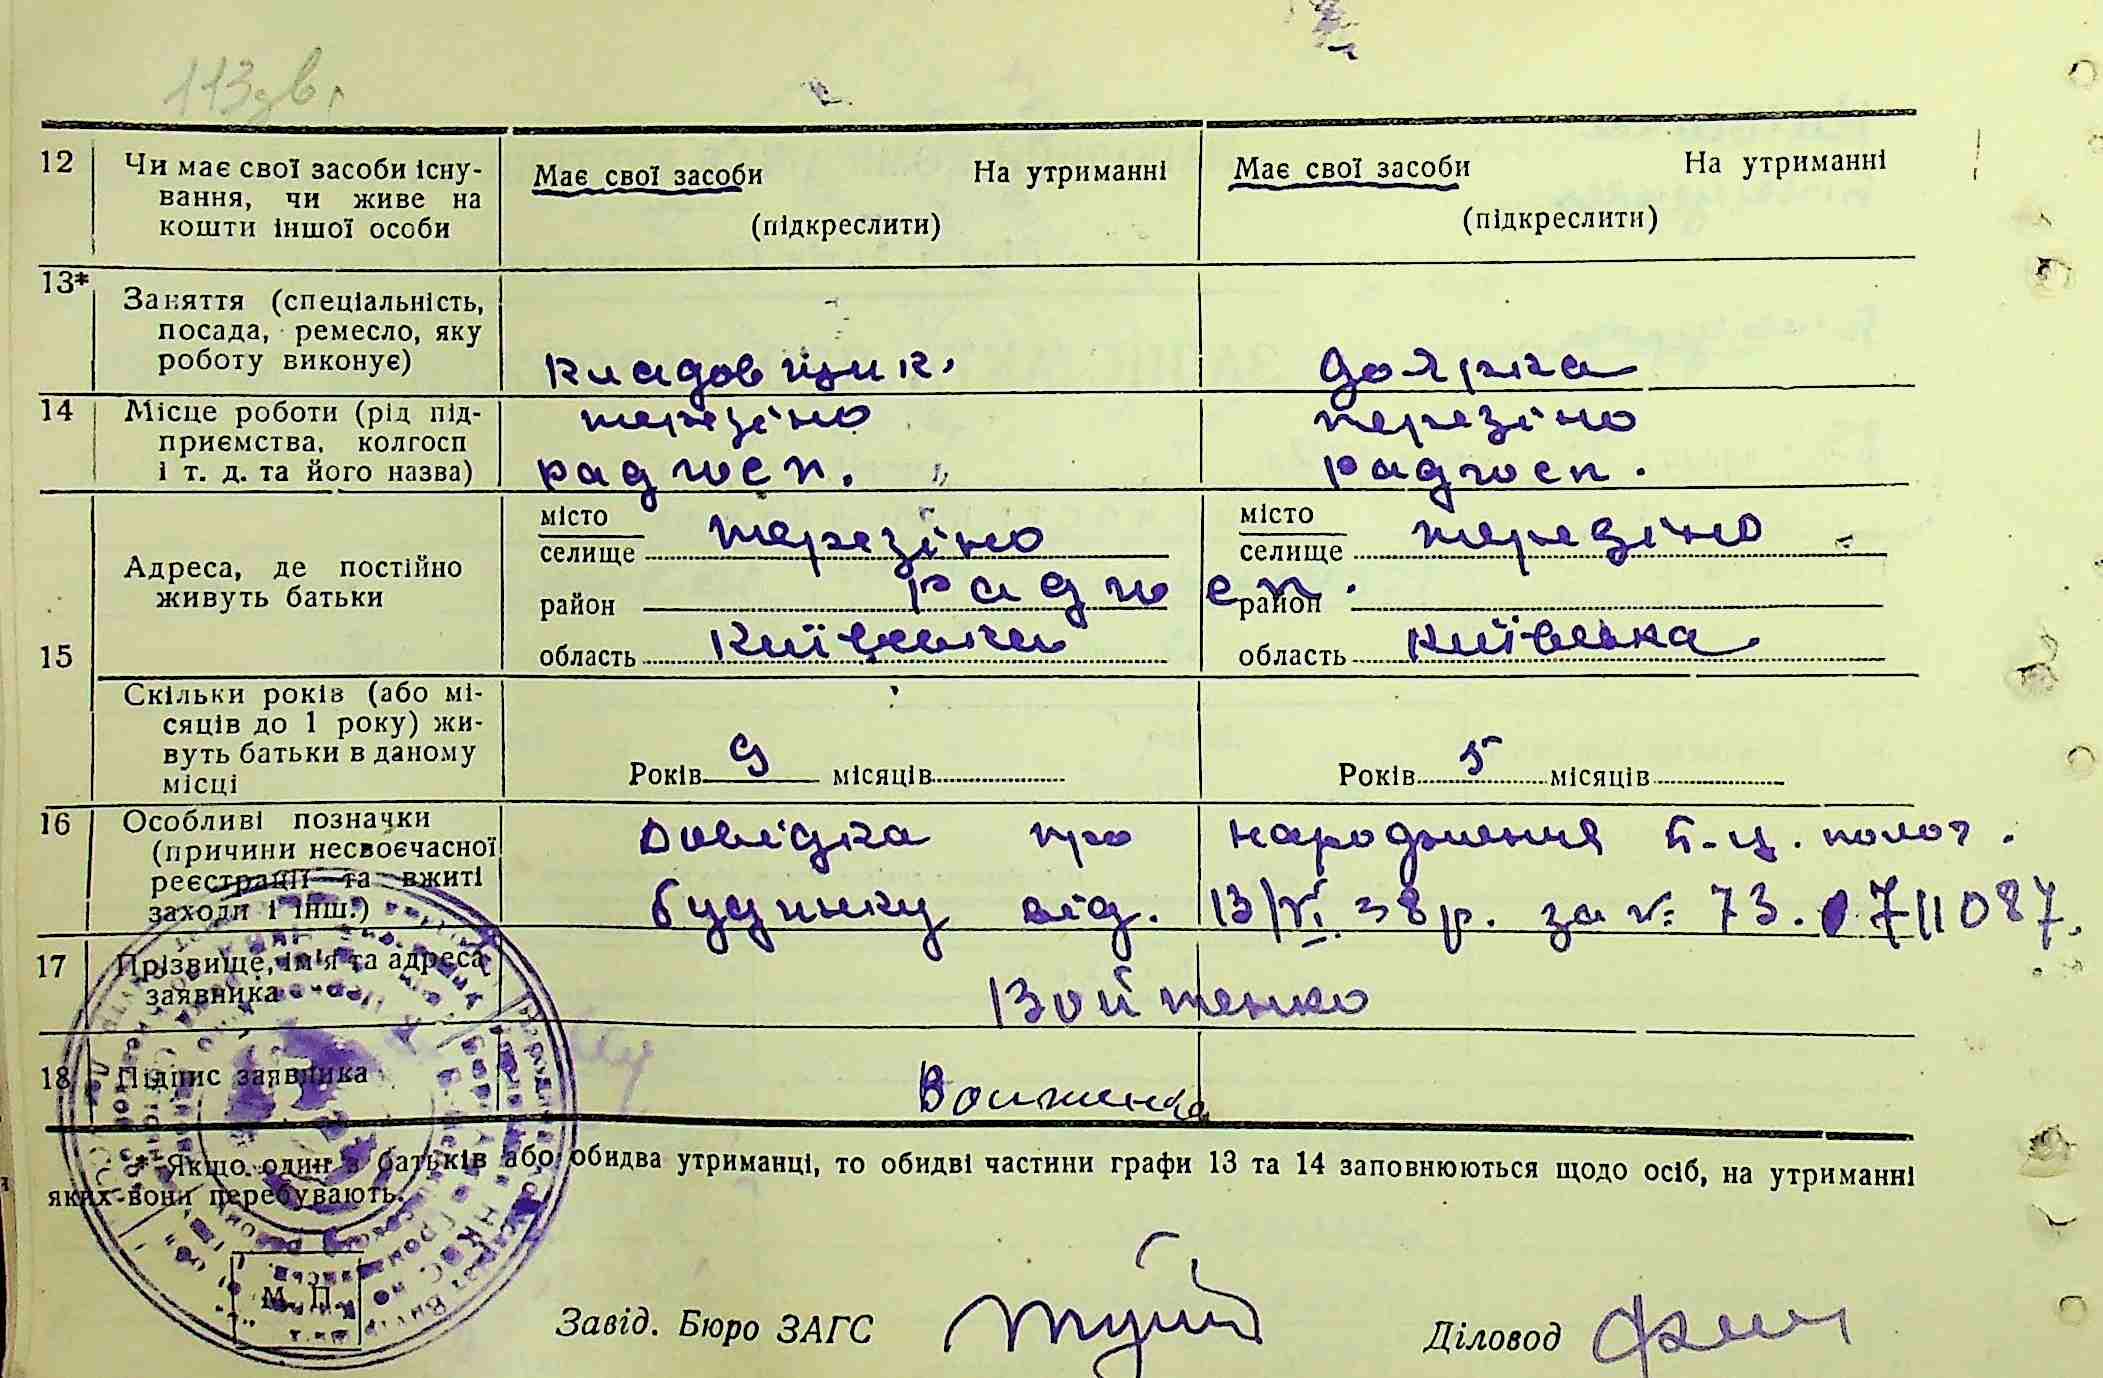 113 зв.
12 Чи має свої засоби існу- Має свої засоби На утриманні Має свої засоби На утриманні
вання, чи живе на
кошти іншої особи (підкреслити) (підкреслити)
13* Заняття (спеціальність,
посада, ремесло, яку
роботу виконує) кладовщик. доярка
14 Місце роботи (рід під- терезіно терезіно
приємства, колгосп
і т. д. та його назва) радгосп. радгосп.
місто місто
селище терезіно селище терезіно
Адреса, де постійно
живуть батьки район радгосп. район
15 область Київська область Київська
Скільки років (або мі-
сяців до 1 року) жи-
вуть батьки в даному
місці Років 9 місяців Років 5 місяців
16 Особливі позначки Довідка про народження Б.-Ц. полог.
(причини несвоєчасної
реєстрації та вжиті
заходи і інш.) будинку від. 13/VI 38 р. за № 73. 7/1087.
17 Прізвище, ім'я та адреса
заявника Войтенко
18 Підпис заявника Воитенко
* Якщо один з батьків або обидва утриманці, то обидві частини графи 13 та 14 заповнюються щодо осіб, на утриманні
яких вони перебувають.
М. П.
Завід. Бюро ЗАГС Діловод